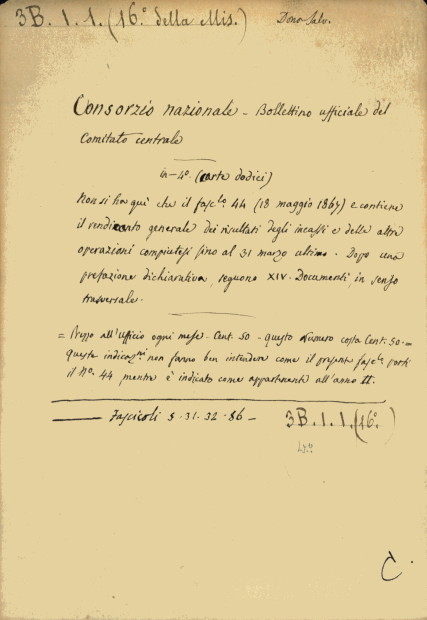 3B. 1. 1. (16.° della Mis.) Dono Salv.
Consorzio nazionale - Bollettino ufficiale del
Comitato centrale
in-4°. (carte dodici)
Non si ha quì che il fasc.lo 44 (18 maggio 1867) e contiene
il rendiconto generale dei risultati degli incassi e delle altre
operazioni compiutesi sino al 31 marzo ultimo. Dopo una
prefazione dichiarativa, seguono XIV. Documenti in senso
trasversale.
= Prezzo all'Ufficio ogni mese - Cent. 50 - questo Numero costa Cent. 50. =
queste indicaz.ni non fanno ben intendere come il presente fasc.lo porti
il N°. 44 mentre è indicato come appartenente all'anno II.
Fascicoli 8. 31. 32. 86 - 3B. 1. 1. (16.°)
C.